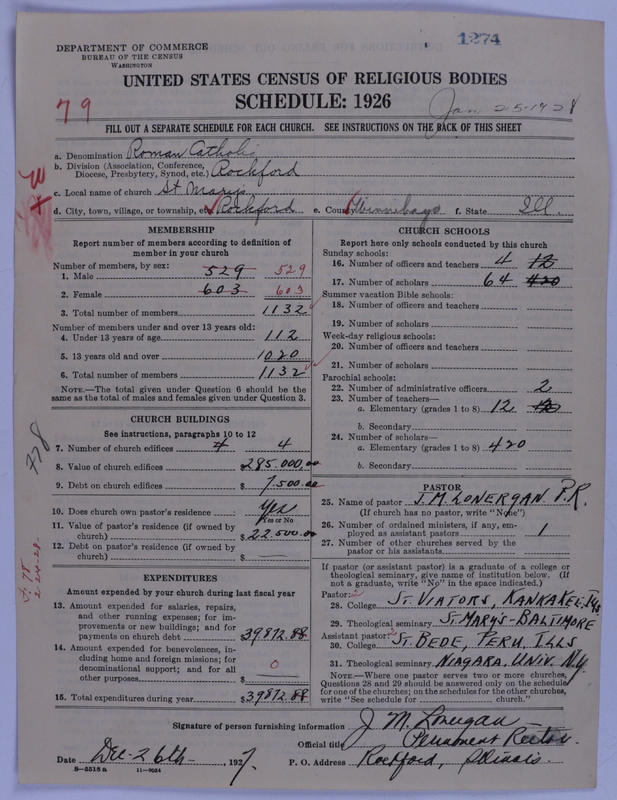 1274
DEPARTMENT OF COMMERCE
BUREAU OF THE CENSUS
WASHINGTON
UNITED STATES CENSUS OF RELIGIOUS BODIES
SCHEDULE: 1926
79
Jan 25-1928
FILL OUT A SEPARATE SCHEDULE FOR EACH CHURCH. SEE INSTRUCTIONS ON THE BACK OF THIS SHEET
a. Denomination Roman Catholic
b. Division (Association, Conference, Diocese, Presbytery, Synod, etc.) Rockford
c. Local name of church St Marys
d. City, town, village, or township, etc. Rockford e. County Winnebago f. State Ill.
MEMBERSHIP
Report number of members according to definition of
member in your church
Number of members, by sex:
1. Male 529 529
2. Female 603 603
3. Total number of members 1132
Number of members under and over 13 years old:
4. Under 13 years of age 112
5. 13 years old and over 1020
6. Total number of members 1132
NOTE.—The total given under Question 6 should be the
same as the total of males and females given under Question 3.
CHURCH BUILDINGS
See instructions, paragraphs 10 to 12
7. Number of church edifices 4 4
8. Value of church edifices $285.000,00
9. Debt on church edifices $7.500.00
10. Does church own pastor's residence Yes
Yes or No
11. Value of pastor's residence (if owned by
church) $22.500.00
12. Debt on pastor's residence (if owned by
church) $
378
EXPENDITURES
Amount expended by your church during last fiscal year
13. Amount expended for salaries, repairs,
and other running expenses; for im-
provements or new buildings; and for
payments on church debt $39812.88
14. Amount expended for benevolences, in-
cluding home and foreign missions; for
denominational support; and for all
other purposes $ 0
15. Total expenditures during year $39812.88
CHURCH SCHOOLS
Report here only schools conducted by this church
Sunday schools:
16. Number of officers and teachers 4 12
17. Number of scholars 64 420
Summer vacation Bible schools:
18. Number of officers and teachers
19. Number of scholars
Week-day religious schools:
20. Number of officers and teachers
21. Number of scholars
Parochial schools:
22. Number of administrative officers 2
23. Number of teachers—
a. Elementary (grades 1 to 8) 12
b. Secondary
24. Number of scholars—
a. Elementary (grades 1 to 8) 420
b. Secondary
PASTOR
25. Name of pastor J. M. LONERGAN P.R.
(If church has no pastor, write "None")
26. Number of ordained ministers, if any, em-
ployed as assistant pastors 1
27. Number of other churches served by the
pastor or his assistants
If pastor (or assistant pastor) is a graduate of a college or
theological seminary, give name of institution below. (If
not a graduate, write "No" in the space indicated.)
Pastor:
28. College ST. VIATORS, KANKAKEE, Ills
29. Theological seminary ST. MARY'S - BALTIMORE
Assistant pastor:
30. College ST. BEDE, PERU, ILLS
31. Theological seminary NIAGARA, UNIV. N.Y.
NOTE.—Where one pastor serves two or more churches,
Questions 28 and 29 should be answered only on the schedule
for one of the churches; on the schedules for the other churches,
write "See schedule for church."
Signature of person furnishing information J M. Lonergan
Official title Permanent Rector
Date Dec-26th- 1927. P. O. Address Rockford, Illinois.
8-3518a 11-9034